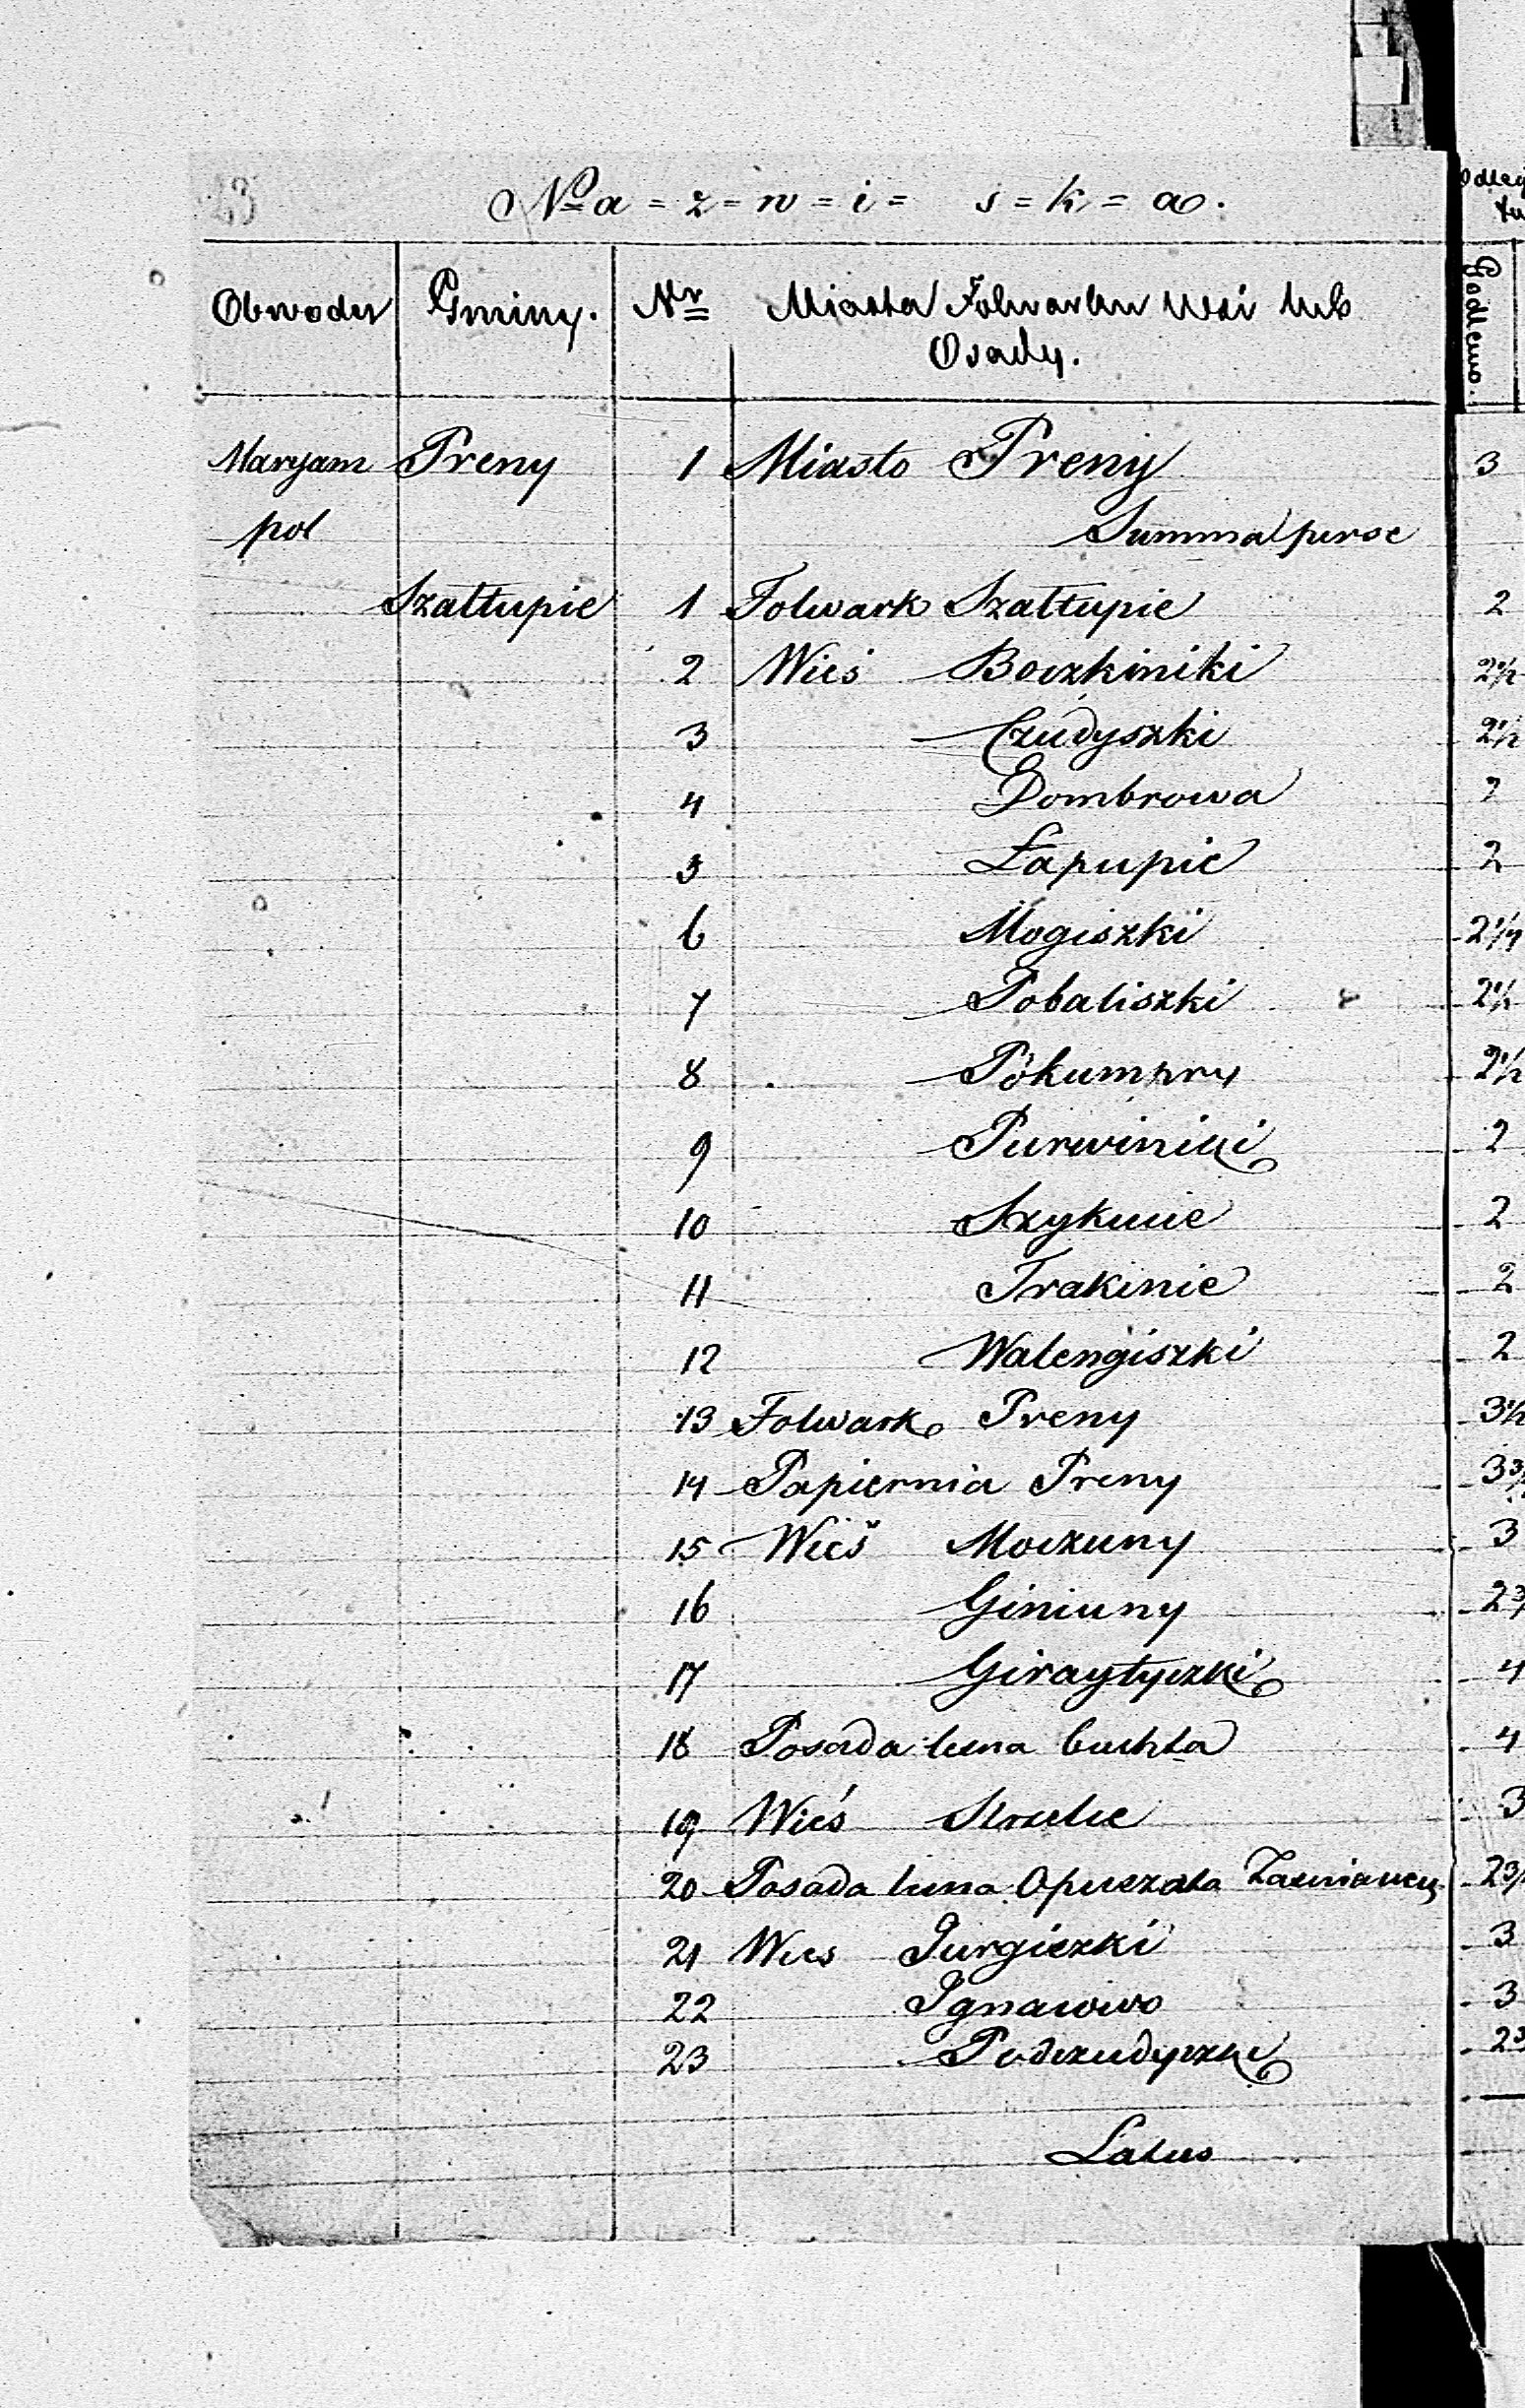 23
Na = z = w = i = s = k = a.
Obwodu Gminy. Nr Miasta Folwarku Wsi lub
Osady.
Godlewo.
Maryam Preny 1 Miasto Preny 3
pol Summa perse
Szałtupie 1 Folwark Szałtupie 2
2 Wieś Boczkiniki 2 1/2
3 Czudyszki 2 1/2
4 Dombrowa 2
5 Łapupie 2
6 Mogiszki 2 1/4
7 Pobaliszki 2 1/2
8 Pokumpry 2 1/2
9 Purwinicki 2
10 Szykucie 2
11 Trakinie 2
12 Walengiszki 2
13 Folwark Preny 3 1/2
14 Papiernia Preny 3
15 Wieś Moczuny 3
16 Giniuny 2
17 Giraytyszki 4
18 Posada leśna Buchta 4
19 Wieś Strzelce 3
20 Posada leśna Opuszata 2
21 Wies Jurgiszki 3
22 Ignacowo 3
23 Podczudyszki 2
Latus